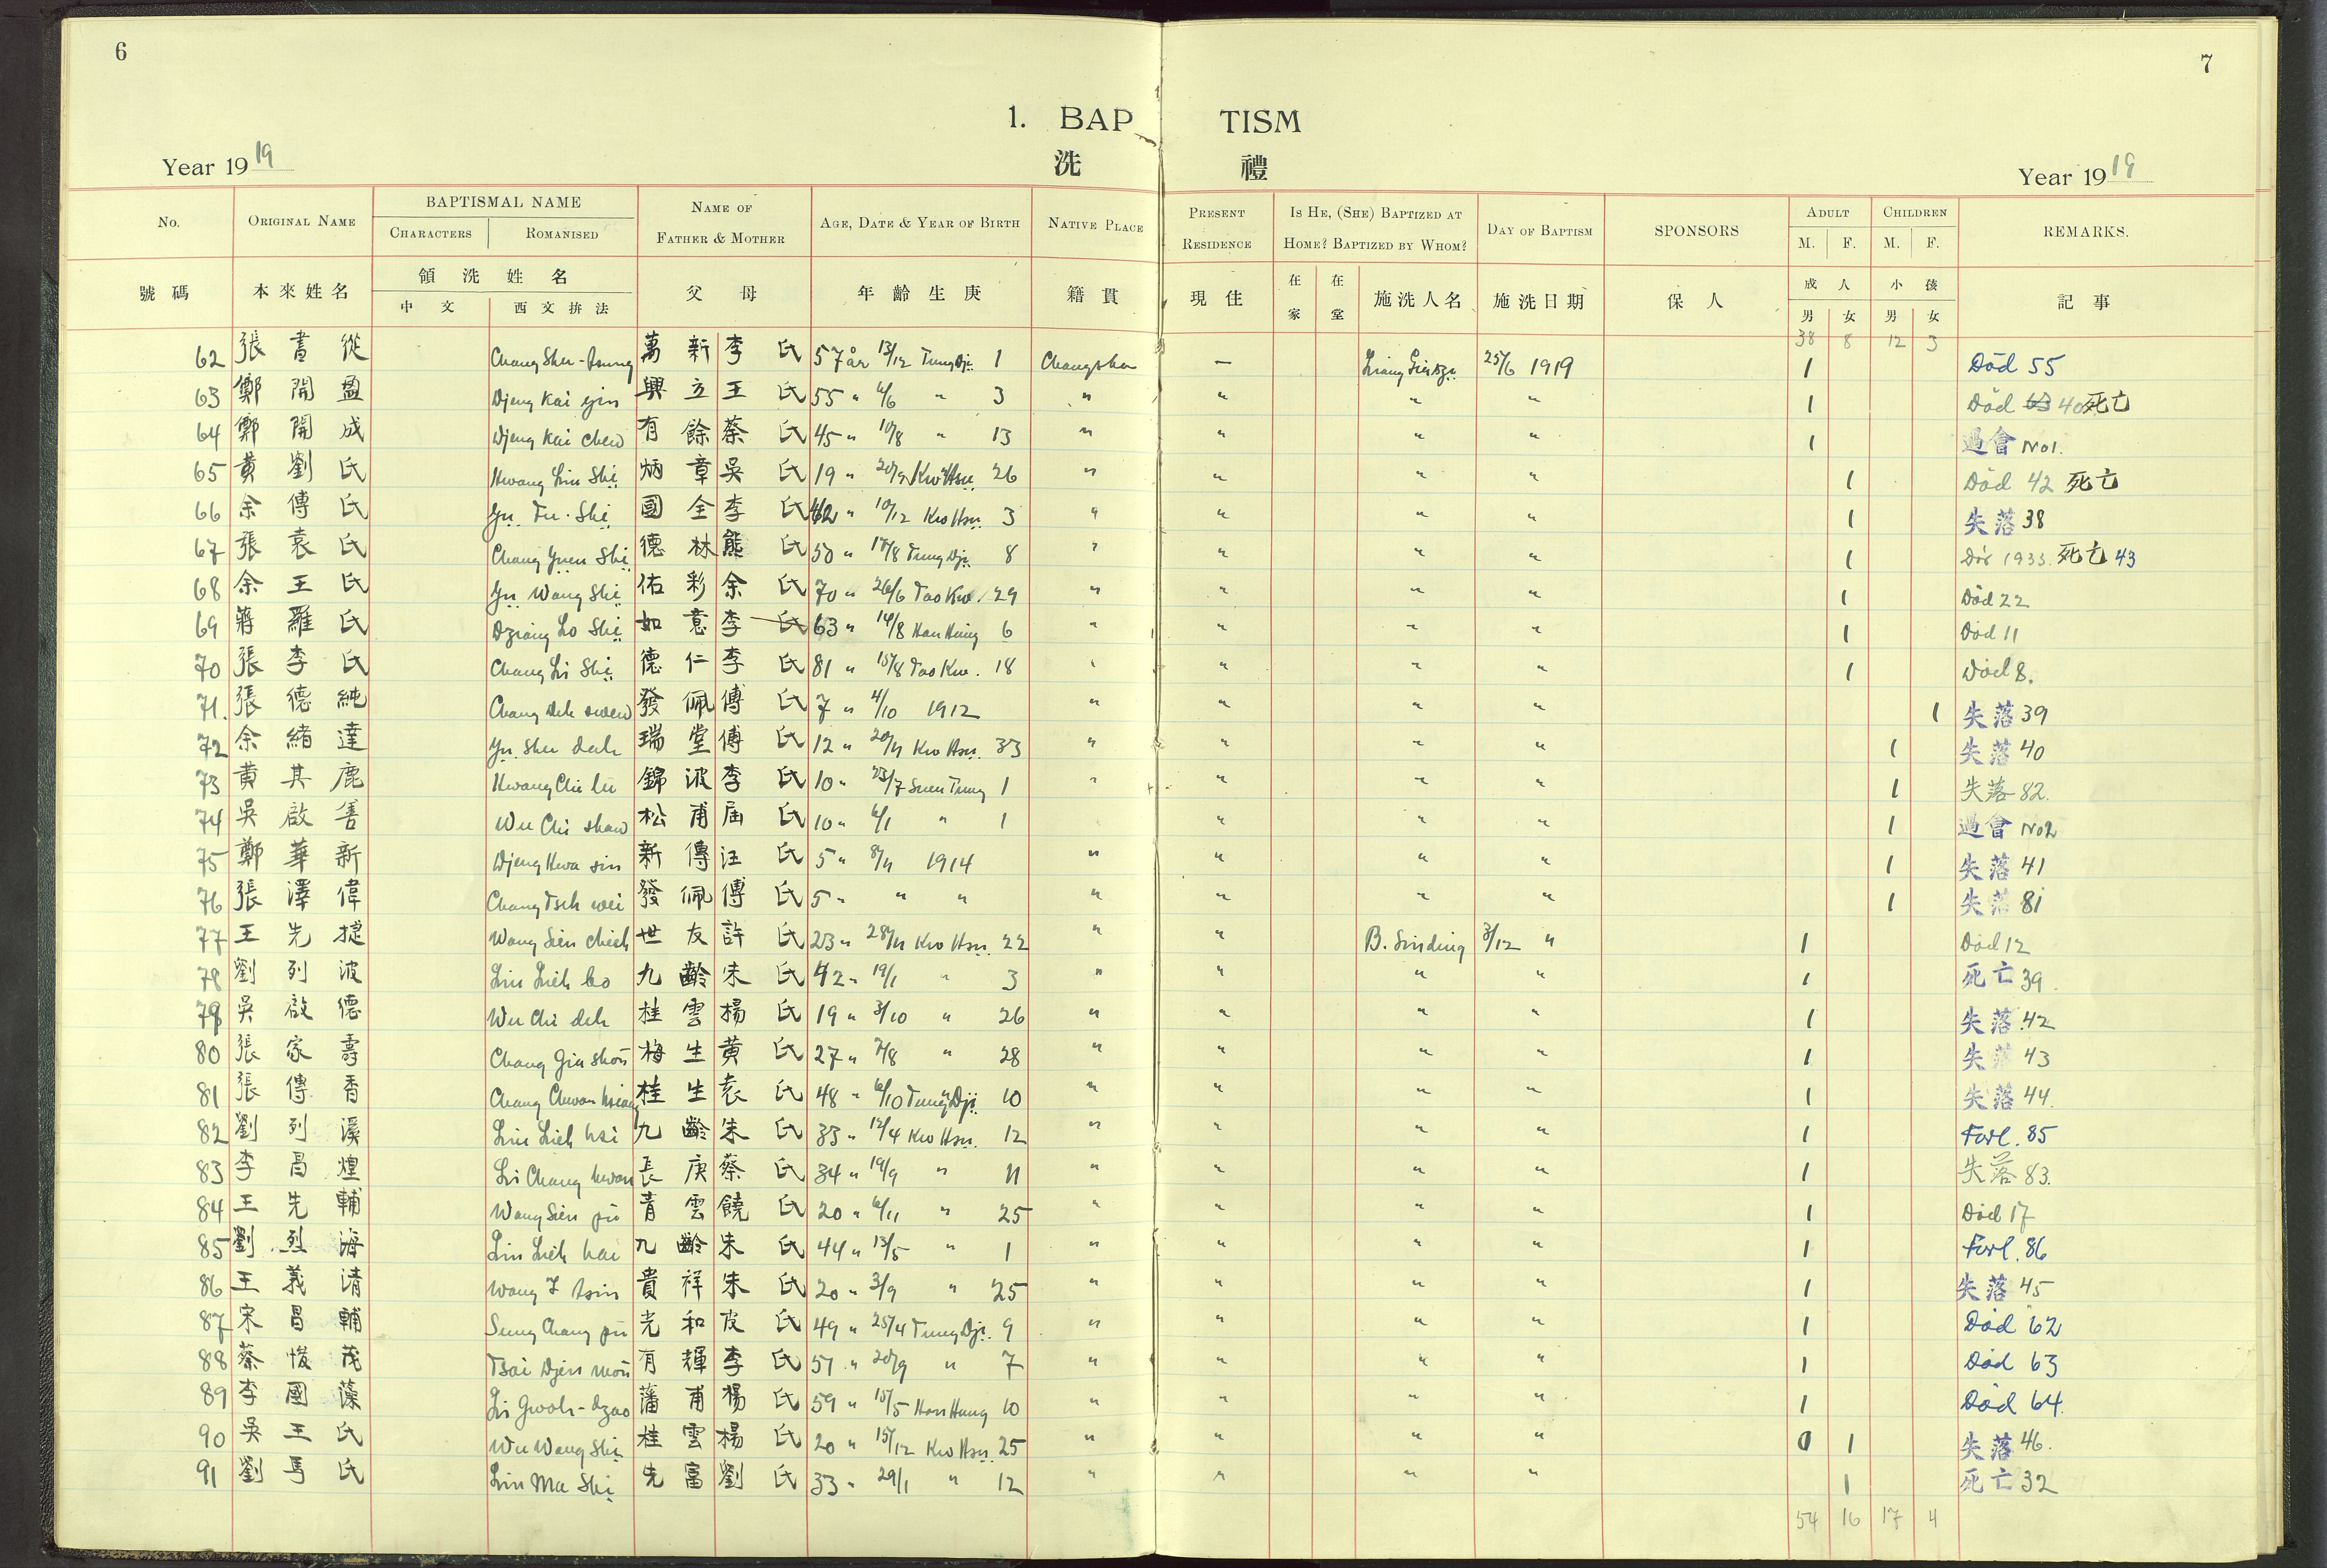 6
7
1. BAP TISM
洗 禮
Year 1919
Year 1919
No. ORIGINAL NAME BAPTISMAL NAME CHARACTERS ROMANISED NAME OF FATHER & MOTHER AGE, DATE & YEAR OF BIRTH NATIVE PLACE PRESENT RESIDENCE IS HE, (SHE) BAPTIZED AT HOME? BAPTIZED BY WHOM? DAY OF BAPTISM SPONSORS ADULT M. F. CHILDREN M. F. REMARKS.
號碼 本來姓名 領洗姓名 中文 西文拚法 父母 年齡生庚 籍貫 現住 在家 在堂 施洗人名 施洗日期 保人 成人 男 女 小孩 男 女 記事
38 8 12 3
62 張書從 Chang Shu-tsung 萬新 李氏 57 år 13/12 Tung Dji 1 Changsha — 25/6 1919 1 Död 55
63 鄭開盈 Djeng Kai yin 興立 王氏 55 " 4/6 " 3 " " " 1 Död 40 死亡
64 鄭開成 Djeng Kai chen 有餘 蔡氏 45 " 10/8 " 13 " " " " 1 過會 No1.
65 黄劉氏 Hwang Liu Shi 炳章 吳氏 19 " 20/9 Kwo Hsu 26 " " " " 1 Död 42 死亡
66 余傅氏 Yu Fu Shi 國全 李氏 62 " 10/12 Kwo Hsu 3 " " " " 1 失落 38
67 張袁氏 Chang Yuen Shi 德林 熊氏 50 " 18/8 Tung Dji 8 " " " " 1 1933. 死亡 43
68 余王氏 Yu Wang Shi 佑彩 余氏 70 " 26/6 Tao Kw. 29 " " " " 1 Död 22
69 蔣羅氏 Dziang Lo Shi 如意 李氏 63 " 14/8 Han Hung 6 " " " " 1 Död 11
70 張李氏 Chang Li Shi 德仁 李氏 81 " 15/8 Tao Kw. 18 " " " " 1 Död 8.
71. 張德純 Chang deh swen 發佩 傅氏 7 " 4/10 1912 " " " " 1 失落 39
72 余緒達 Yu Shu dah 瑞堂 傅氏 12 " 20/11 Kwo Hsu. 33 " " " " 1 失落 40
73 黄其鹿 Hwang Chi lu 錦波 李氏 10 " 23/7 Suen Tung 1 " " " " 1 失落 82.
74 吳啟善 Wu Chi shan 松甫 屈氏 10 " 6/1 " 1 " " " 1 過會 No2
75 鄭華新 Djeng Hwa sin 新傳 汪氏 5 " 8/11 1914 " " " " 1 失落 41
76 張澤偉 Chang Tseh wei 發佩 傅氏 5 " " " " " " " 1 失落 81
77 王先捷 Wang Sien chieh 世友 許氏 23 " 28/11 Kwo Hsu. 22 " " B. Sinding 3/12 " 1 Död 12
78 劉列波 Liu Lieh bo 九齡 朱氏 42 " 19/1 " 3 " " " " 1 死亡 39.
79 吳啟德 Wu Chi deh 桂雲 楊氏 19 " 3/10 " 26 " " " " 1 失落 42
80 張家壽 Chang Gia shou 梅生 黄氏 27 " 7/8 " 28 " " " " 1 失落 43
81 張傳香 Chang Chwan hsiang 桂生 袁氏 48 " 6/10 Tung Dji 10 " " " " 1 失落 44.
82 劉列溪 Liu Lieh hsi 九齡 朱氏 33 " 12/4 Kwo Hsu. 12 " " " " 1 Forl. 85
83 李昌煌 Li Chang hwan 長庚 蔡氏 34 " 19/9 " 11 " " " " 1 失落 83.
84 王先輔 Wang Sien fu 青雲 饒氏 20 " 6/11 " 25 " " " " 1 Död 17
85 劉烈海 Liu Lieh hai 九齡 朱氏 44 " 13/5 " 1 " " " " 1 Forl. 86
86 王義清 Wang I tsin 貴祥 朱氏 20 " 3/9 " 25 " " " " 1 失落 45
87 宋昌輔 Sung Chang fu 光和 皮氏 49 " 25/4 Tung Dji. 9 " " " " 1 Död 62
88 蔡俊茂 Tsai Djen mou 有輝 李氏 51 " 20/9 " 7 " " " " 1 Död 63
89 李國藻 Li Gwoh-dzao 藩甫 楊氏 59 " 15/5 Han Hung 10 " " " " 1 Död 64.
90 吳王氏 Wu Wang Shi 桂雲 楊氏 20 " 15/12 Kwo Hsu. 25 " " " " 0 1 失落 46.
91 劉馬氏 Liu Ma Shi 先富 劉氏 33 " 29/1 " 12 " " " " 1 死亡 32
54 16 17 4